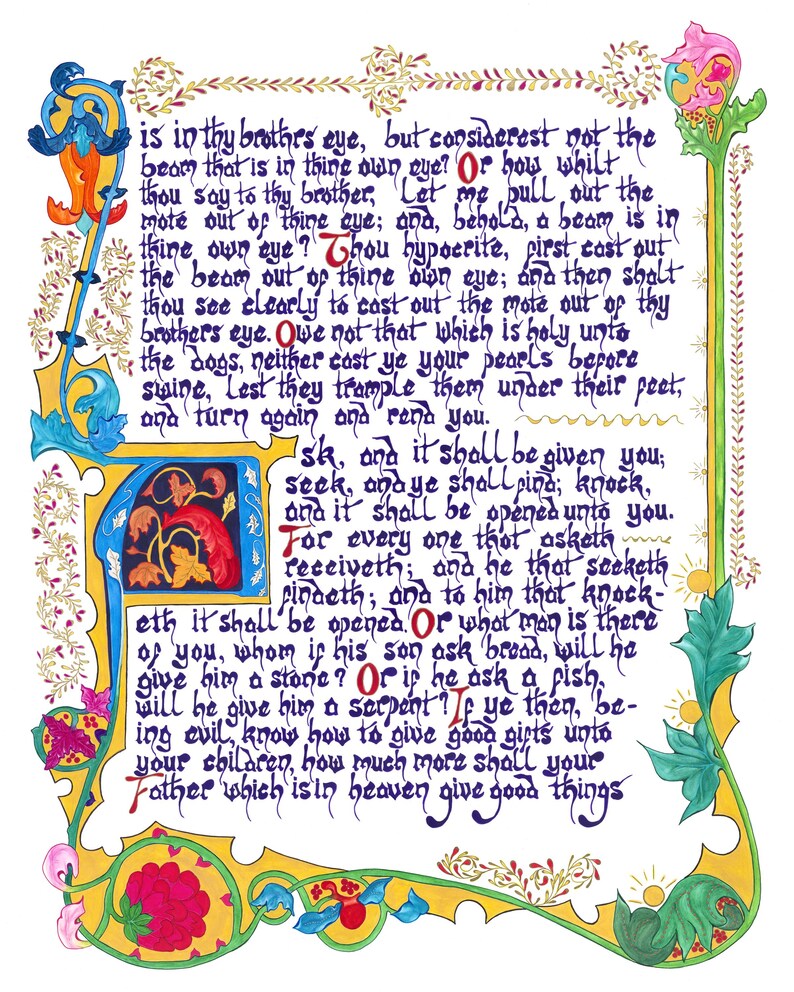 is in thy brothrs eye, but considerest not the
beam that is in thine own eye? Or how whilt
thou say to thy brother, Let me pull out the
mote out of thine eye; and, behold, a beam is in
thine own eye? Thou hypocrite, first cast out
the beam out of thine own eye; and then shalt
thou see clearly to cast out the mote out of thy
brothers eye. Owe not that which is holy unto
the dogs, neither cast ye your pearls before
swine, lest they trample them under their feet,
and turn again and rend you.
Ask, and it shall be given you;
seek, and ye shall find; knock,
and it shall be opened unto you.
For every one that asketh
receiveth; and he that seeketh
findeth; and to him that knock-
eth it shall be opened. Or what man is there
of you, whom if his son ask bread, will he
give him a stone? Or if he ask a fish,
will he give him a serpent? If ye then, be-
ing evil, know how to give good gifts unto
your children, how much more shall your
Father which is in heaven give good things